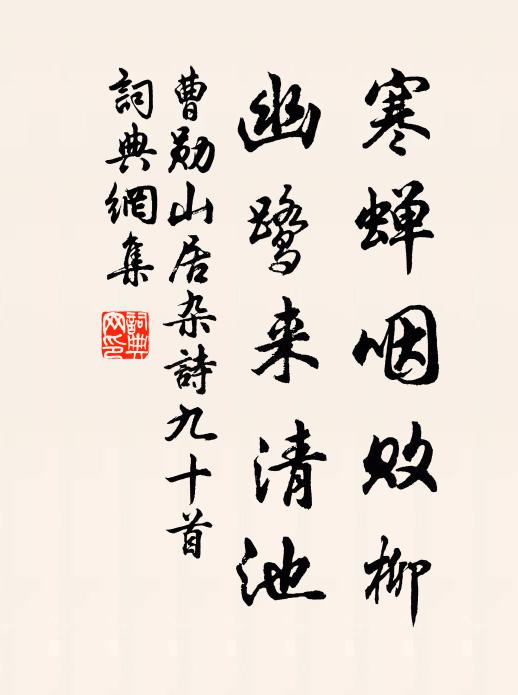 寒蝉咽败柳
幽鹭来清池
曹勋山居杂詩九十首
詞典網集
詞典网印